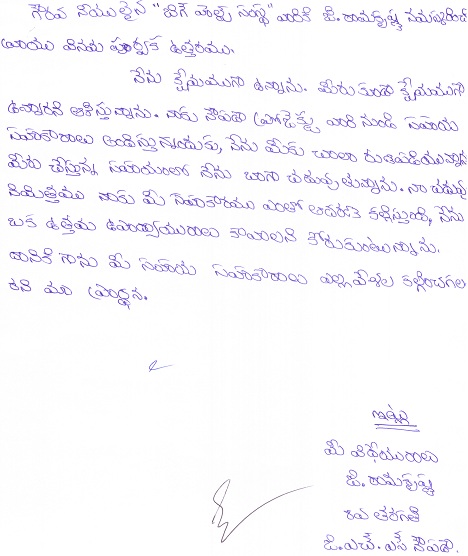 గౌరవ నీయులైన "బిగ్ హెల్ప్ సంస్థ" వారికి జి. రామకృష్ణ నమస్కరించి
వ్రాయు వినయ పూర్వక ఉత్తరము.
నేను క్షేమముగా ఉన్నాను. మీరు కూడా క్షేమముగా
ఉన్నారని ఆశిస్తున్నాను. నాకు నౌపడా ప్రోజెక్టు వారి నుండి సహాయ
సహకారాలు అందిస్తున్నందుకు, నేను మీకు చాలా రుణపడియున్నాను
మీరు చేస్తున్న సహాయంతో నేను బాగా చదువు తున్నాను. నా చదువు
నిమిత్తము నాకు మీ సహకారము ఎంతో ఆదరణ కల్పిస్తుంది, నేను
ఒక ఉత్తమ ఉపాధ్యాయురాలు కావాలని కోరుకుంటున్నాను.
దానికి గాను మీ సహాయ సహకారాలు ఎల్లవేళల కల్పించగల
రని మా ప్రార్థన.
ఇట్లు
మీ విధేయురాలు
జి. రామకృష్ణ
10వ తరగతి
జి.ఎచ్.ఎస్ నౌపడ.